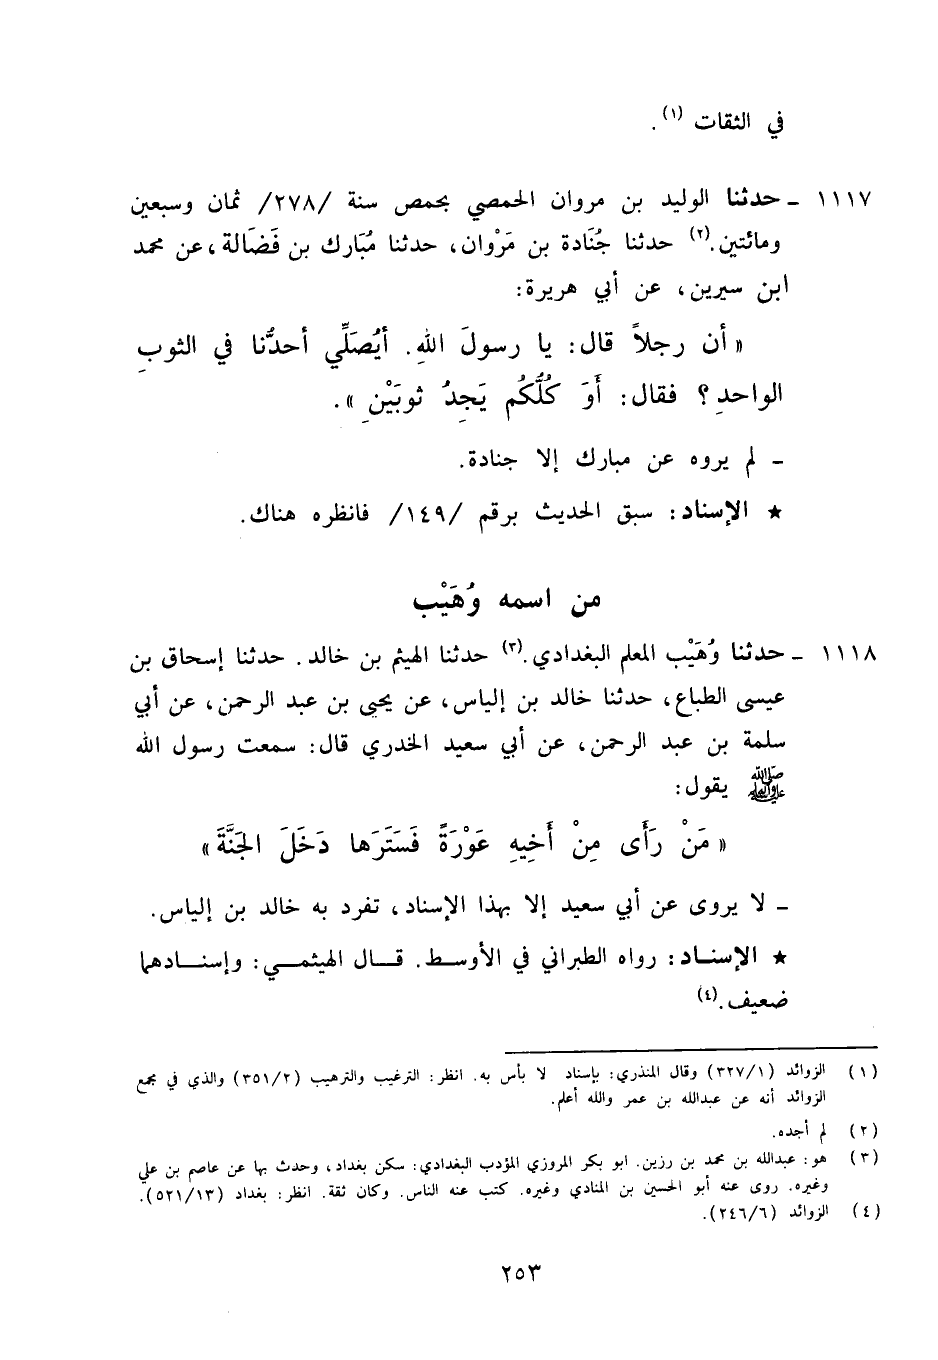 في الثقات (١).
١١١٧ ـ حدثنا الوليد بن مروان الحمصي بحمص سنة /٢٧٨/ ثمان وسبعين
ومائتين.(٢) حدثنا جُنَادة بن مَرْوان، حدثنا مُبَارك بن فَضَالة، عن محمد
ابن سيرين، عن أبي هريرة:
« أن رجلاً قال: يا رسولَ اللهِ. أيُصَلِّي أحدُنا في الثوبِ
الواحدِ؟ فقال: أَوَ كُلُّكُم يَجِدُ ثوبَيْنِ ».
ـ لم يروه عن مبارك إلا جنادة.
★ الإسناد: سبق الحديث برقم /١٤٩/ فانظره هناك.
من اسمه وُهَيْب
١١١٨ ـ حدثنا وُهَيْب المعلم البغدادي.(٣) حدثنا الهيثم بن خالد. حدثنا إسحاق بن
عيسى الطباع، حدثنا خالد بن إلياس، عن يحيى بن عبد الرحمن، عن أبي
سلمة بن عبد الرحمن، عن أبي سعيد الخدري قال: سمعت رسول الله
ﷺ يقول:
« مَنْ رَأَى مِنْ أَخِيهِ عَوْرَةً فَسَتَرَها دَخَلَ الجَنَّةَ »
ـ لا يروى عن أبي سعيد إلا بهذا الإسناد، تفرد به خالد بن إلياس.
★ الإسنـاد: رواه الطبراني في الأوسـط. قـال الهيثمـي: وإسنـادهما
ضعيف.(٤)
(١) الزوائد (٣٢٧/١) وقال المنذري: بإسناد لا بأس به. انظر: الترغيب والترهيب (٣٥١/٢) والذي في مجمع
الزوائد أنه عن عبدالله بن عمر والله أعلم.
(٢) لم أجده.
(٣) هو: عبدالله بن محمد بن رزين. ابو بكر المروزي المؤدب البغدادي: سكن بغداد، وحدث بها عن عاصم بن علي
وغيره. روى عنه أبو الحسين بن المنادي وغيره. كتب عنه الناس. وكان ثقة. انظر: بغداد (٥٢١/١٣).
(٤) الزوائد (٢٤٦/٦).
٢٥٣